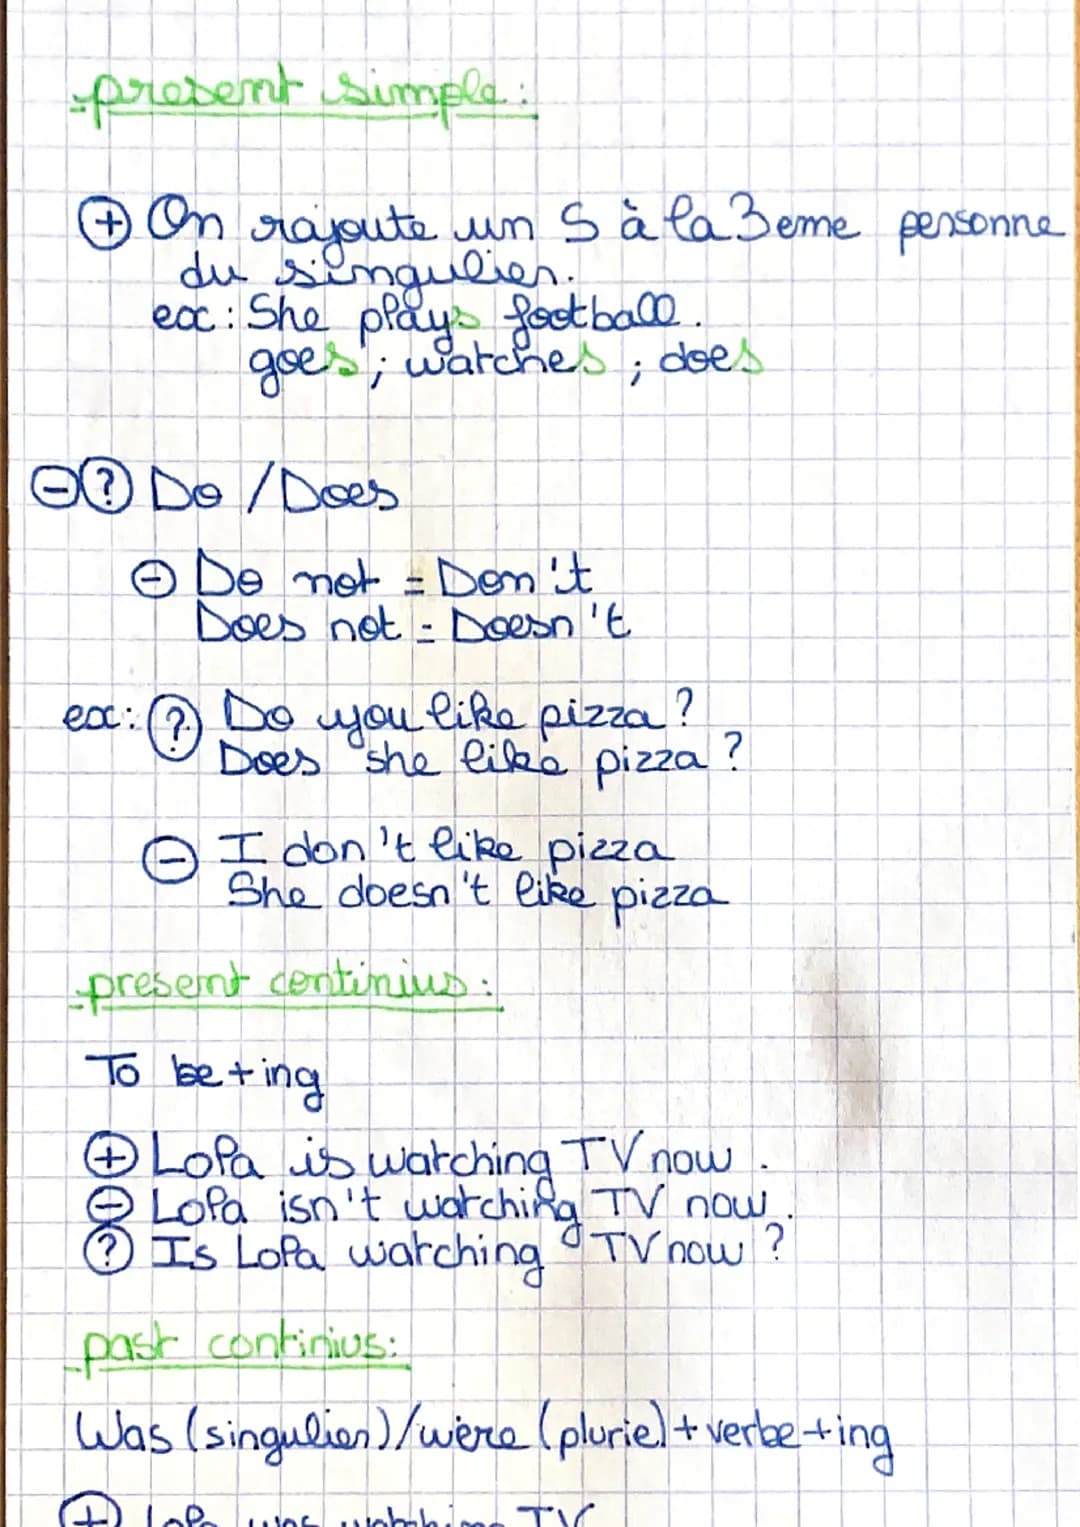 present simple:
⊕ On rajoute un S à la 3eme personne
du singulier.
ex: She plays football.
goes; watches; does
⊖? Do / Does
⊖ Do not = Don't
Does not = Doesn't
ex: ? Do you like pizza?
Does she like pizza?
⊖ I don't like pizza
She doesn't like pizza
present continius:
To be + ing
⊕ Lola is watching TV now.
⊖ Lola isn't watching TV now.
? Is Lola watching TV now?
past continius:
Was (singulier)/were (pluriel) + verbe + ing
⊕ Lola was watching TV